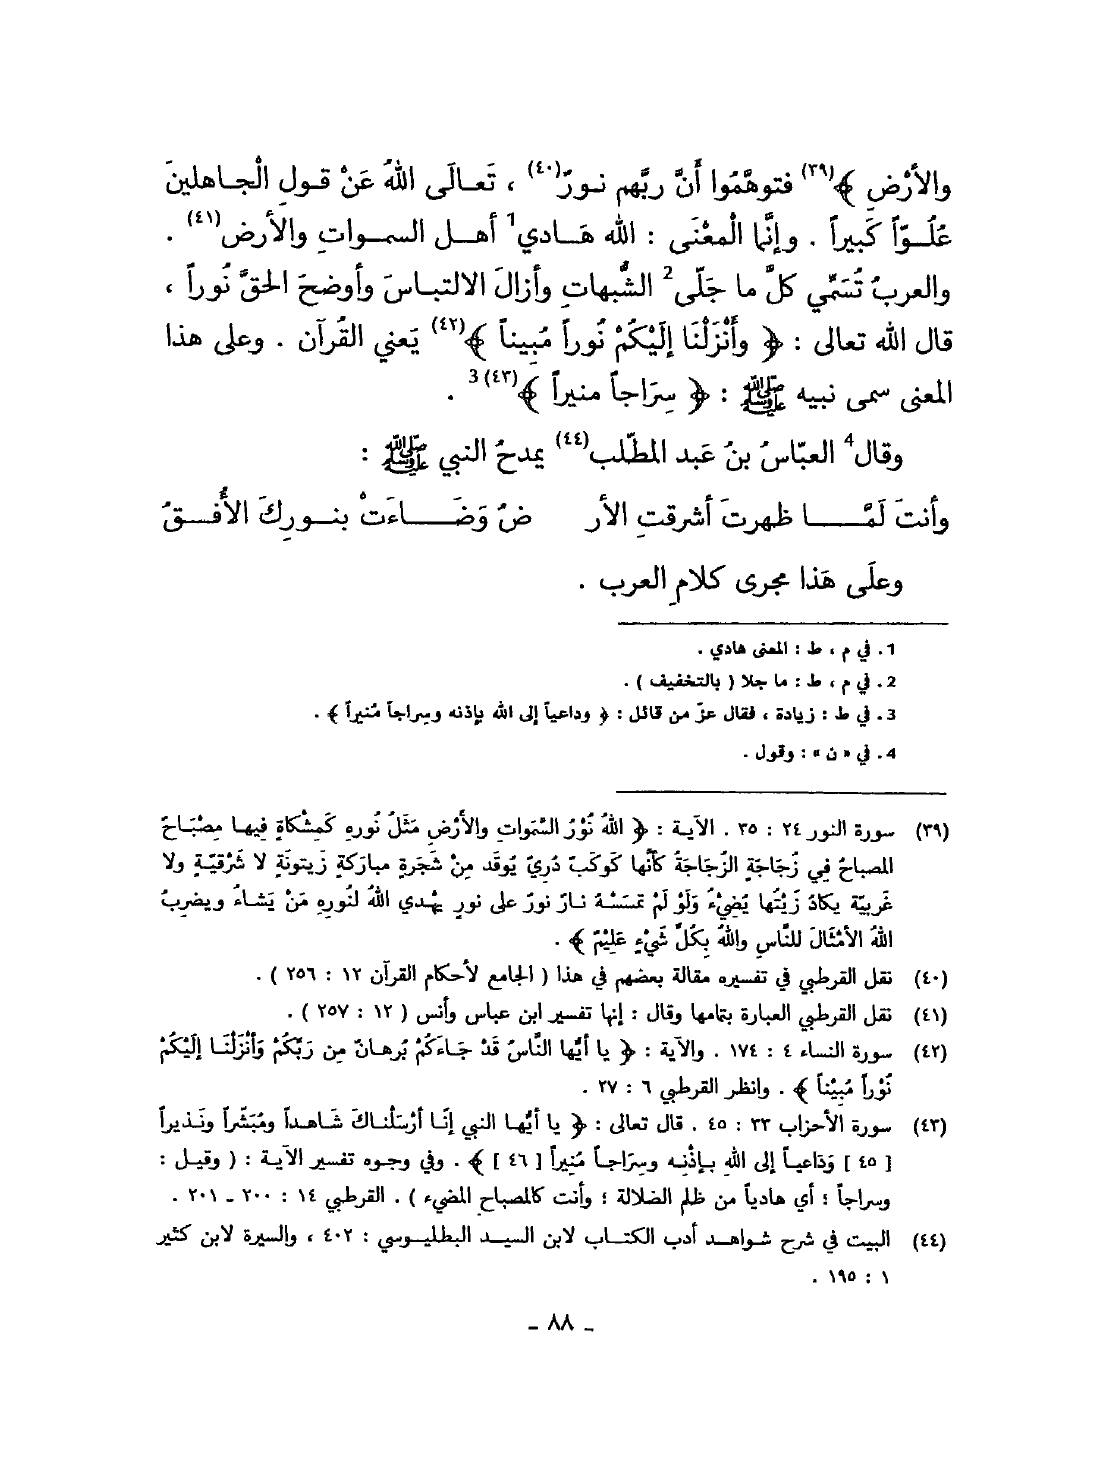 والأرْضِ ﴾(٣٩) فتوهَّمُوا أَنَّ ربَّهم نـورٌ(٤٠) ، تَعـالَى اللهُ عَنْ قـولِ الْجـاهلينَ
عُلُـوّاً كَبيراً . وإنَّما الْمعْنَى : الله هَـادي1 أهـل السمـواتِ والأرض(٤١) .
والعربُ تُسَمّي كلَّ ما جَلّى2 الشُّبهاتِ وأزالَ الالتبـاسَ وأوضحَ الحقَّ نُوراً ،
قال الله تعالى : ﴿ وأَنْزَلْنَا إلَيْكُمْ نُوراً مُبيناً ﴾(٤٢) يَعني القُرآن . وعلى هذا
المعنى سمى نبيه ﷺ : ﴿ سِرَاجاً منيراً ﴾(٤٣) 3 .
وقال4 العبّاسُ بنُ عَبد المطّلب(٤٤) يمدحُ النبي ﷺ :
وأنتَ لَمَّـــا ظهرتَ أشرقتِ الأر ضُ وَضَــــاءَتْ بنـورِكَ الأُفـقُ
وعلَى هَذا مجرى كلامِ العرب .
1. في م ، ط : المعنى هادي .
2. في م ، ط : ما جلا ( بالتخفيف ) .
3. في ط : زيادة ، فقال عزّ من قائل : ﴿ وداعياً إلى الله بإذنه وسِراجاً مُنيراً ﴾ .
4. في « ن » : وقول .
(٣٩) سورة النور ٢٤ : ٣٥ . الآيـة : ﴿ اللهُ نُوْرُ السَّمَواتِ والأَرْضِ مَثَلُ نُورهِ كَمِشْكاةٍ فِيهـا مِصْبَـاحٌ
المصباحُ فِي زُجَاجَةٍ الزُجَاجَةُ كأنَّها كَوكَبٌ دُرِيّ يُوقَد مِنْ شَجَرةٍ مباركَةٍ زَيتونَةٍ لا شَرْقيّـةٍ ولا
غَربيّة يكادُ زَيْتُها يُضِيْءُ وَلَوْ لَمْ تمسَسْهُ نـارٌ نورٌ على نورٍ يهْدي اللهُ لنُورهِ مَنْ يَشاءُ ويضربُ
اللهُ الأمْثَالَ للنَّاسِ واللهُ بِكُلِّ شَيْءٍ عَلِيْمٌ ﴾ .
(٤٠) نقل القرطبي في تفسيره مقالة بعضهم في هذا ( الجامع لأحكام القرآن ١٢ : ٢٥٦ ) .
(٤١) نقل القرطبي العبارة بتمامها وقال : إنها تفسير ابن عباس وأنس ( ١٢ : ٢٥٧ ) .
(٤٢) سورة النساء ٤ : ١٧٤ . والآية : ﴿ يا أيُّها النَّاسُ قَدْ جَاءَكُمْ بُرهـانٌ مِن رَبِّكُمْ وَأَنْزَلْنَـا إلَيْكُمْ
نُوْراً مُبِيْناً ﴾ . وانظر القرطبي ٦ : ٢٧ .
(٤٣) سورة الأحزاب ٣٣ : ٤٥ . قال تعالى : ﴿ يا أيُّهـا النبي إنَّـا أرْسَلْناكَ شَاهـداً ومُبَشّراً ونَـذيراً
[ ٤٥ ] وَدَاعيـاً إلى اللهِ بـإذْنِـه وسِرَاجـاً مُنيراً [ ٤٦ ] ﴾ . وفي وجـوه تفسير الآيـة : ( وقيـل :
وسراجاً ؛ أي هادياً من ظلم الضلالة ؛ وأنت كالمصباح المضيء ) . القرطبي ١٤ : ٢٠٠ ـ ٢٠١ .
(٤٤) البيت في شرح شواهـد أدب الكتـاب لابن السيـد البطليـوسي : ٤٠٢ ، والسيرة لابن كثير
١ : ١٩٥ .
ـ ٨٨ ـ